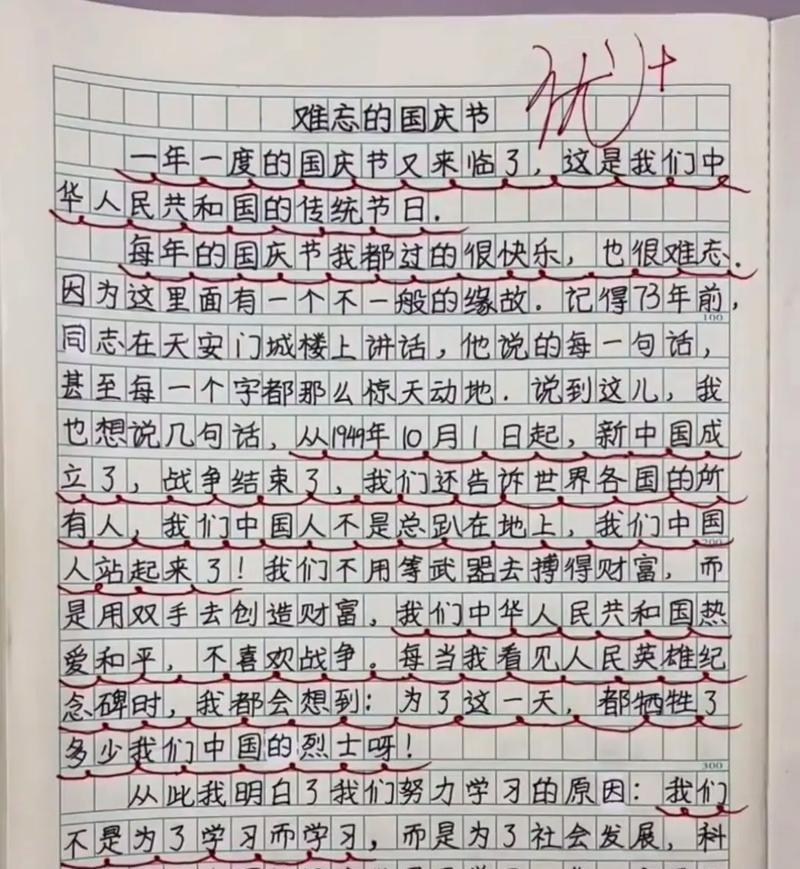 优+
难忘的国庆节
一年一度的国庆节又来临了，这是我们中
华人民共和国的传统节日.
每年的国庆节我都过的很快乐，也很难忘.
因为这里面有一个不一般的缘故.记得73年前，
100
同志在天安门城楼上讲话，他说的每一句话，
甚至每一个字都那么惊天动地.说到这儿，我
也想说几句话，从1949年10月1日起，新中国成
立了，战争结束了，我们还告诉世界各国的所
有人，我们中国人不是总趴在地上，我们中国
200
人站起来了！我们不用等武器去搏得财富，而
是用双手去创造财富，我们中华人民共和国热
爱和平，不喜欢战争。每当我看见人民英雄纪
念碑时，我都会想到：为了这一天，都牺牲了
多少我们中国的烈士呀！
300
从此我明白了我们努力学习的原因：我们
不是为了学习而学习，而是为了社会发展，科